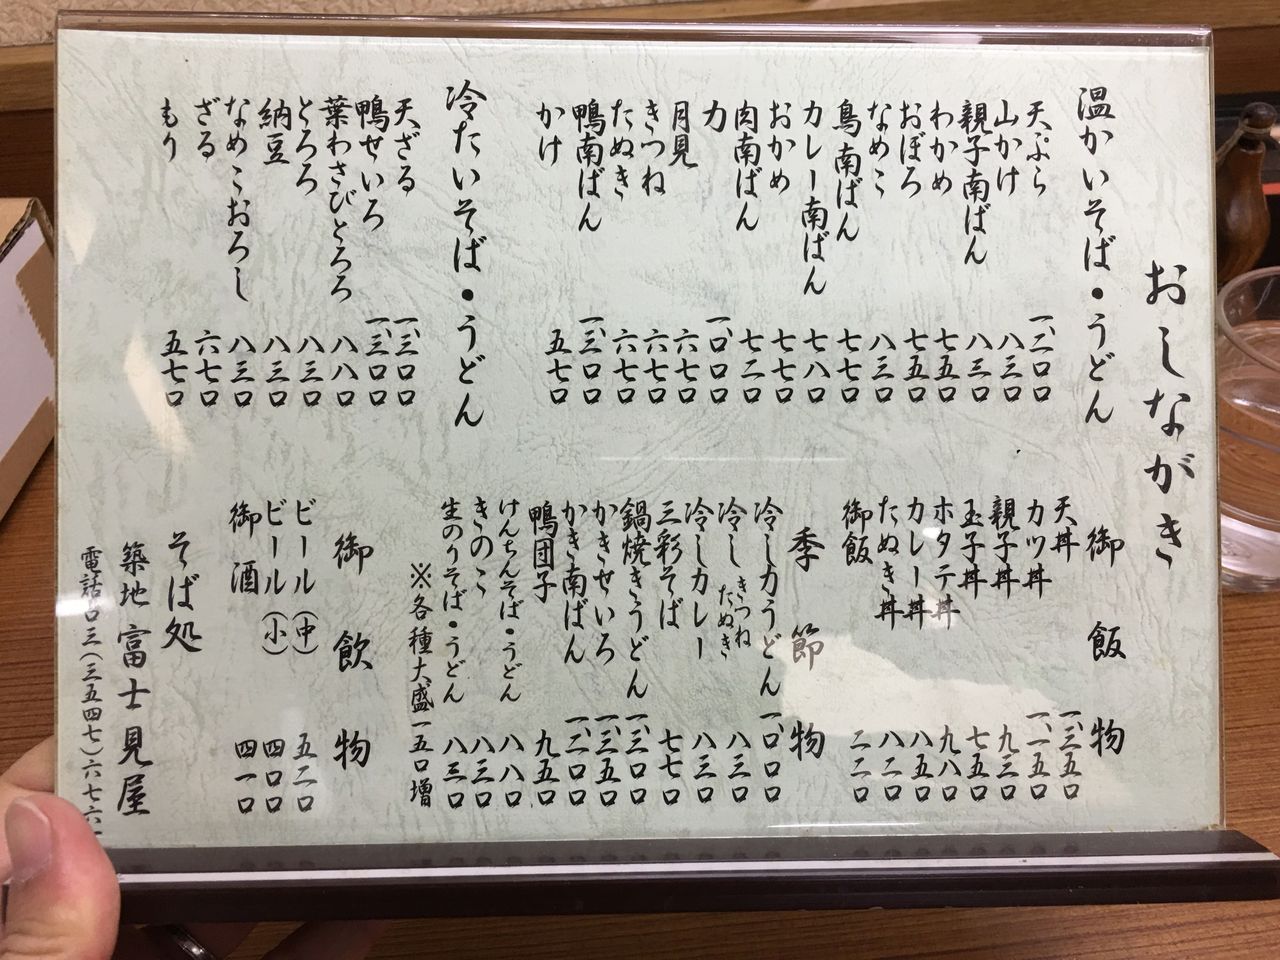 おしながき
温かいそば・うどん
天ぷら 一、二〇〇
山かけ 八三〇
親子南ばん 八三〇
わかめ 七五〇
おぼろ 七五〇
なめこ 八三〇
鳥南ばん 七七〇
カレー南ばん 七八〇
おかめ 七七〇
肉南ばん 七二〇
力 一、〇〇〇
月見 六七〇
きつね 六七〇
たぬき 六七〇
鴨南ばん 一、三〇〇
かけ 五七〇
冷たいそば・うどん
天ざる 一、三〇〇
鴨せいろ 一、三〇〇
葉わさびとろろ 八八〇
とろろ 八三〇
納豆 八三〇
なめこおろし 八三〇
ざる 六七〇
もり 五七〇
御飯物
天丼 一、三五〇
カツ丼 一、一五〇
親子丼 九三〇
玉子丼 七五〇
ホタテ丼 九八〇
カレー丼 八五〇
たぬき丼 八二〇
御飯 二二〇
季節物
冷し力うどん 一、〇〇〇
冷し きつね たぬき 八三〇
冷しカレー 八三〇
三彩そば 七七〇
鍋焼きうどん 一、三〇〇
かきせいろ 一、三五〇
かき南ばん 一、二〇〇
鴨団子 九五〇
けんちんそば・うどん 八八〇
きのこ 八三〇
生のりそば・うどん 八三〇
※各種大盛 一五〇増
御飲物
ビール(中) 五二〇
ビール(小) 四〇〇
御酒 四一〇
そば処
築地富士見屋
電話〇三(三五四七)六七六一